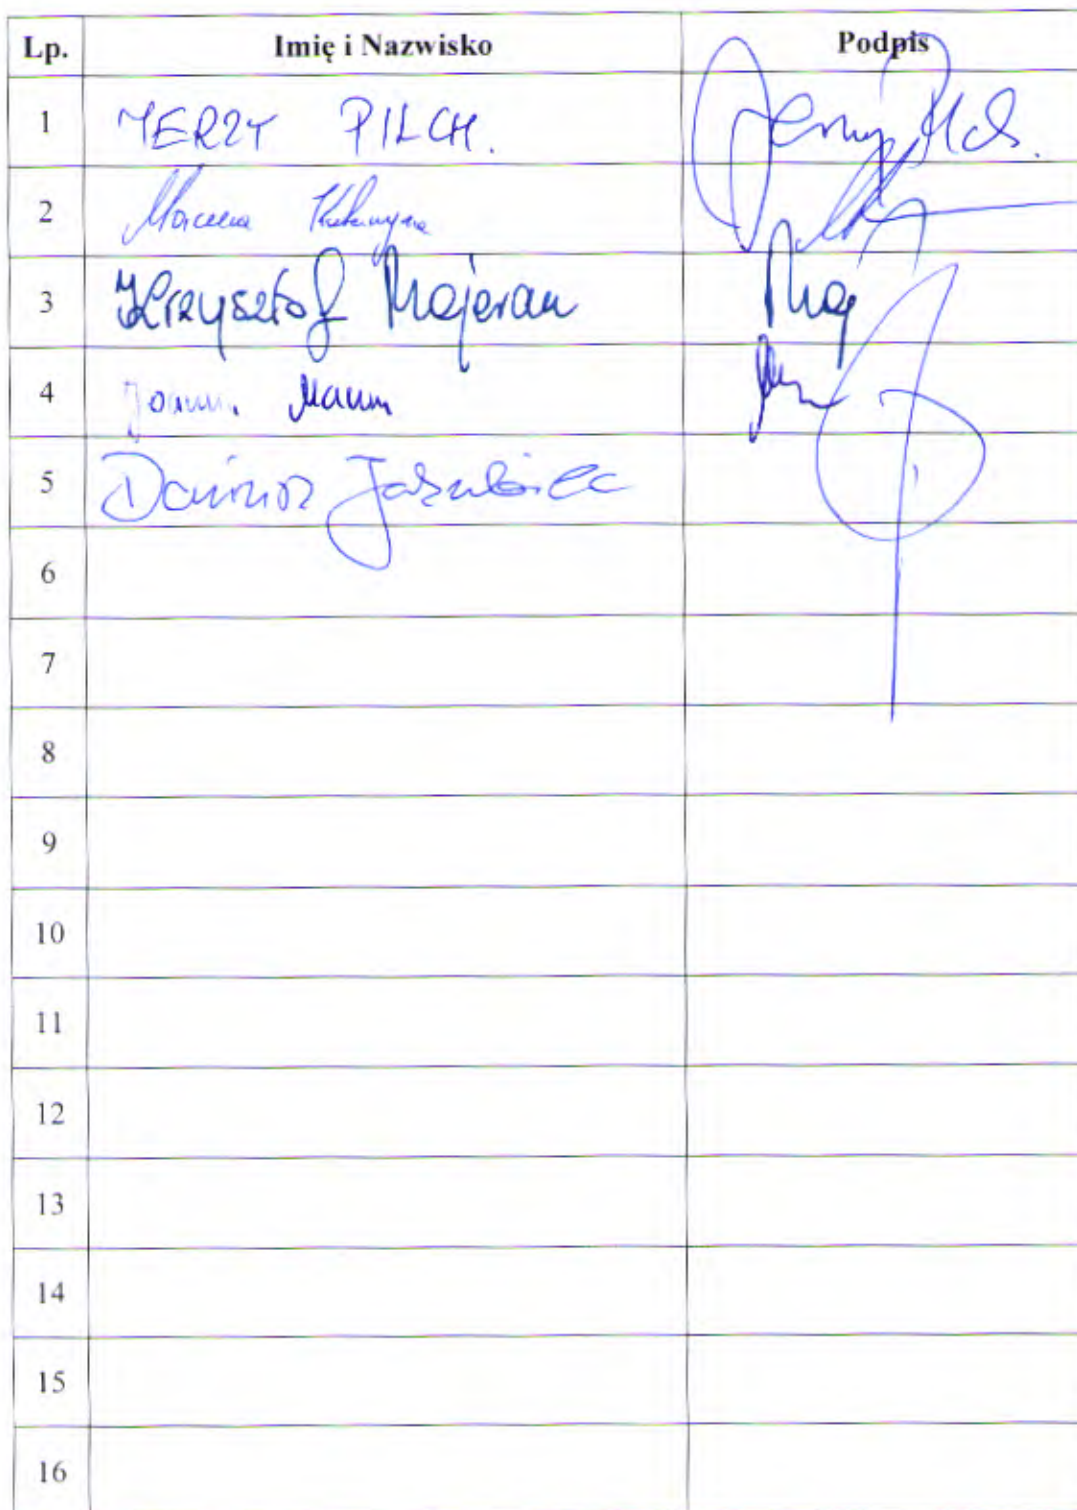 Lp. Imię i Nazwisko Podpis
1 JERZY PILCH. Jerzy Pilch.
2
3 Krzysztof Majeran Maj
4
5 Dariusz Jakubiec
6
7
8
9
10
11
12
13
14
15
16